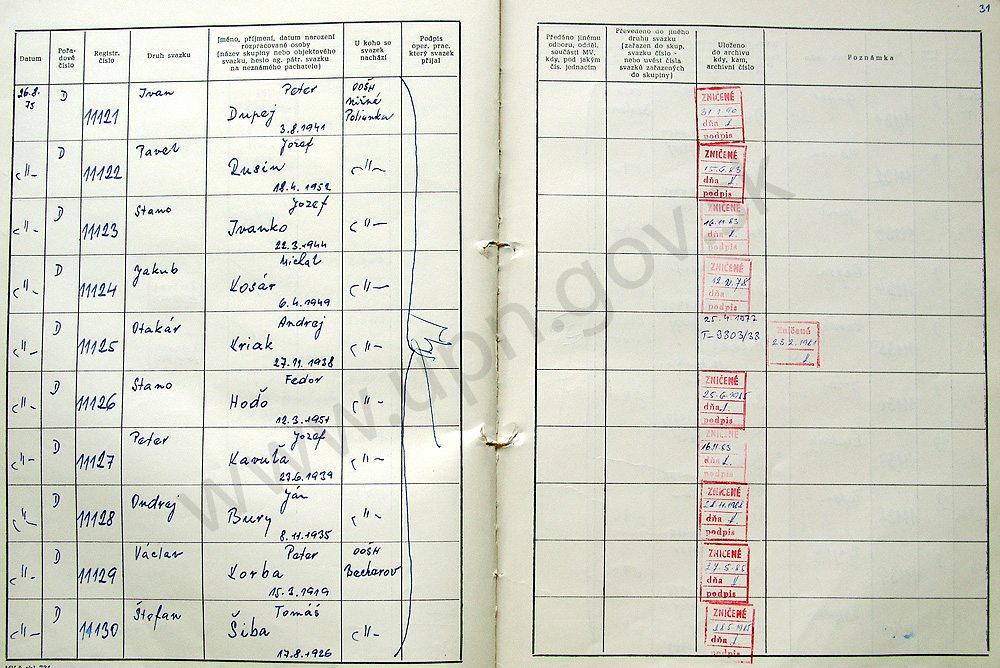 31
Datum
Pořa-
dové
číslo
Registr.
číslo
Druh svazku
Jméno, příjmení, datum narození
rozpracované osoby
(název skupiny nebo objektového
svazku, heslo ag. pátr. svazku
na neznámého pachatele)
U koho se
svazek
nachází
Podpis
oper. prac.
který svazek
přijal
Předáno jinému
odboru, odděl.
součásti MV,
kdy, pod jakým
čís. jednacím
Převedeno do jiného
druhu svazku
(zařazen do skup.
svazku číslo -
nebo uvést čísla
svazků zařazených
do skupiny)
Uloženo
do archivu
kdy, kam,
archivní číslo
Poznámka
26.8.
75
D
11121
Ivan
Peter
Dupej
3.8.1941
OOŠH
Nižná
Polianka
ZNIČENÉ
dňa
podpis
-"-
D
11122
Pavel
Jozef
Rusin
18.4.1952
-"-
ZNIČENÉ
15.6.83
dňa
podpis
-"-
D
11123
Stano
Jozef
Ivanko
22.3.1944
-"-
ZNIČENÉ
16.11.83
dňa
podpis
-"-
D
11124
Jakub
Michal
Kosár
6.4.1949
-"-
ZNIČENÉ
dňa
podpis
-"-
D
11125
Otakár
Andrej
Kriak
27.11.1938
-"-
25.4.1977
T-9803/38
Zničené
-"-
D
11126
Stano
Fedor
Hoďo
12.3.1951
-"-
ZNIČENÉ
25.6.1985
dňa
podpis
-"-
D
11127
Peter
Jozef
Kavuľa
27.6.1939
-"-
ZNIČENÉ
16.11.83
dňa
podpis
-"-
D
11128
Ondrej
Ján
Bury
8.11.1935
-"-
ZNIČENÉ
dňa
podpis
-"-
D
11129
Václav
Peter
Korba
15.3.1919
OOŠH
Becherov
ZNIČENÉ
27.5.86
dňa
podpis
-"-
D
11130
Štefan
Tomáš
Šiba
17.8.1926
-"-
ZNIČENÉ
dňa
podpis
www.upn.gov.sk